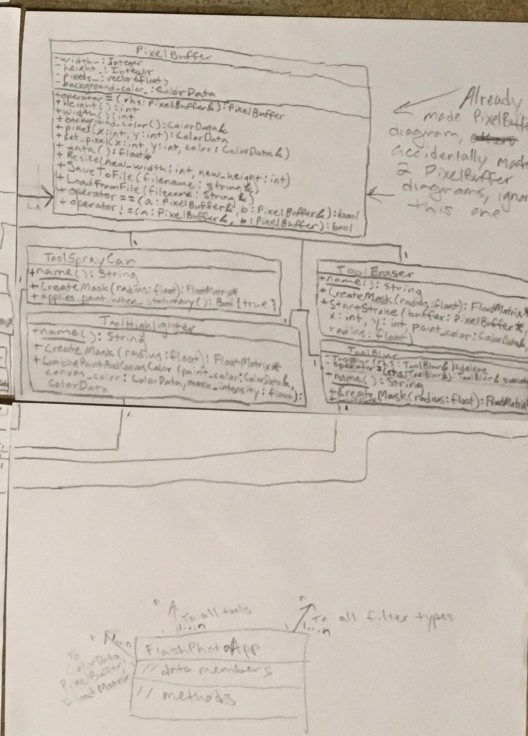 PixelBuffer
- width_: Integer
- height_: Integer
- pixels_: vector<float>
- background_color_: ColorData
+ operator=(rhs: PixelBuffer&): PixelBuffer
+ height(): int
+ width(): int
+ background_color(): ColorData&
+ pixel(x: int, y: int): ColorData
+ set_pixel(x: int, y: int, color: ColorData&)
+ data(): float*
+ Resize(new_width: int, new_height: int)
+ SaveToFile(filename: string&)
+ LoadFromFile(filename: String&)
+ operator==(a: PixelBuffer&, b: PixelBuffer&): bool
+ operator!=(a: PixelBuffer&, b: PixelBuffer): bool
Already
made PixelBuffer
diagram,
accidentally made
2 PixelBuffer
diagrams, ignore
this one
ToolSprayCan
+ name(): String
+ CreateMask(radius: float): FloatMatrix*
+ applies_paint_when_stationary(): Bool {true}
ToolHighlighter
+ name(): String
+ CreateMask(radius: float): FloatMatrix*
+ CombinePaintAndCanvasColor(paint_color: ColorData&,
canvas_color: ColorData, mask_intensity: float):
ColorData
ToolEraser
+ name(): String
+ CreateMask(radius: float): FloatMatrix*
+ StartStroke(buffer: PixelBuffer*
x: int, y: int, paint_color: ColorData,
radius: float)
ToolBlur
+ name(): String
+ Create_Mask(radius: float): FloatMatrix
n
To all tools
1...n
n
To all filter types
1...n
To
ColorData
PixelBuffer,
FloatMatrix
FlashPhotoApp
// data members
// methods